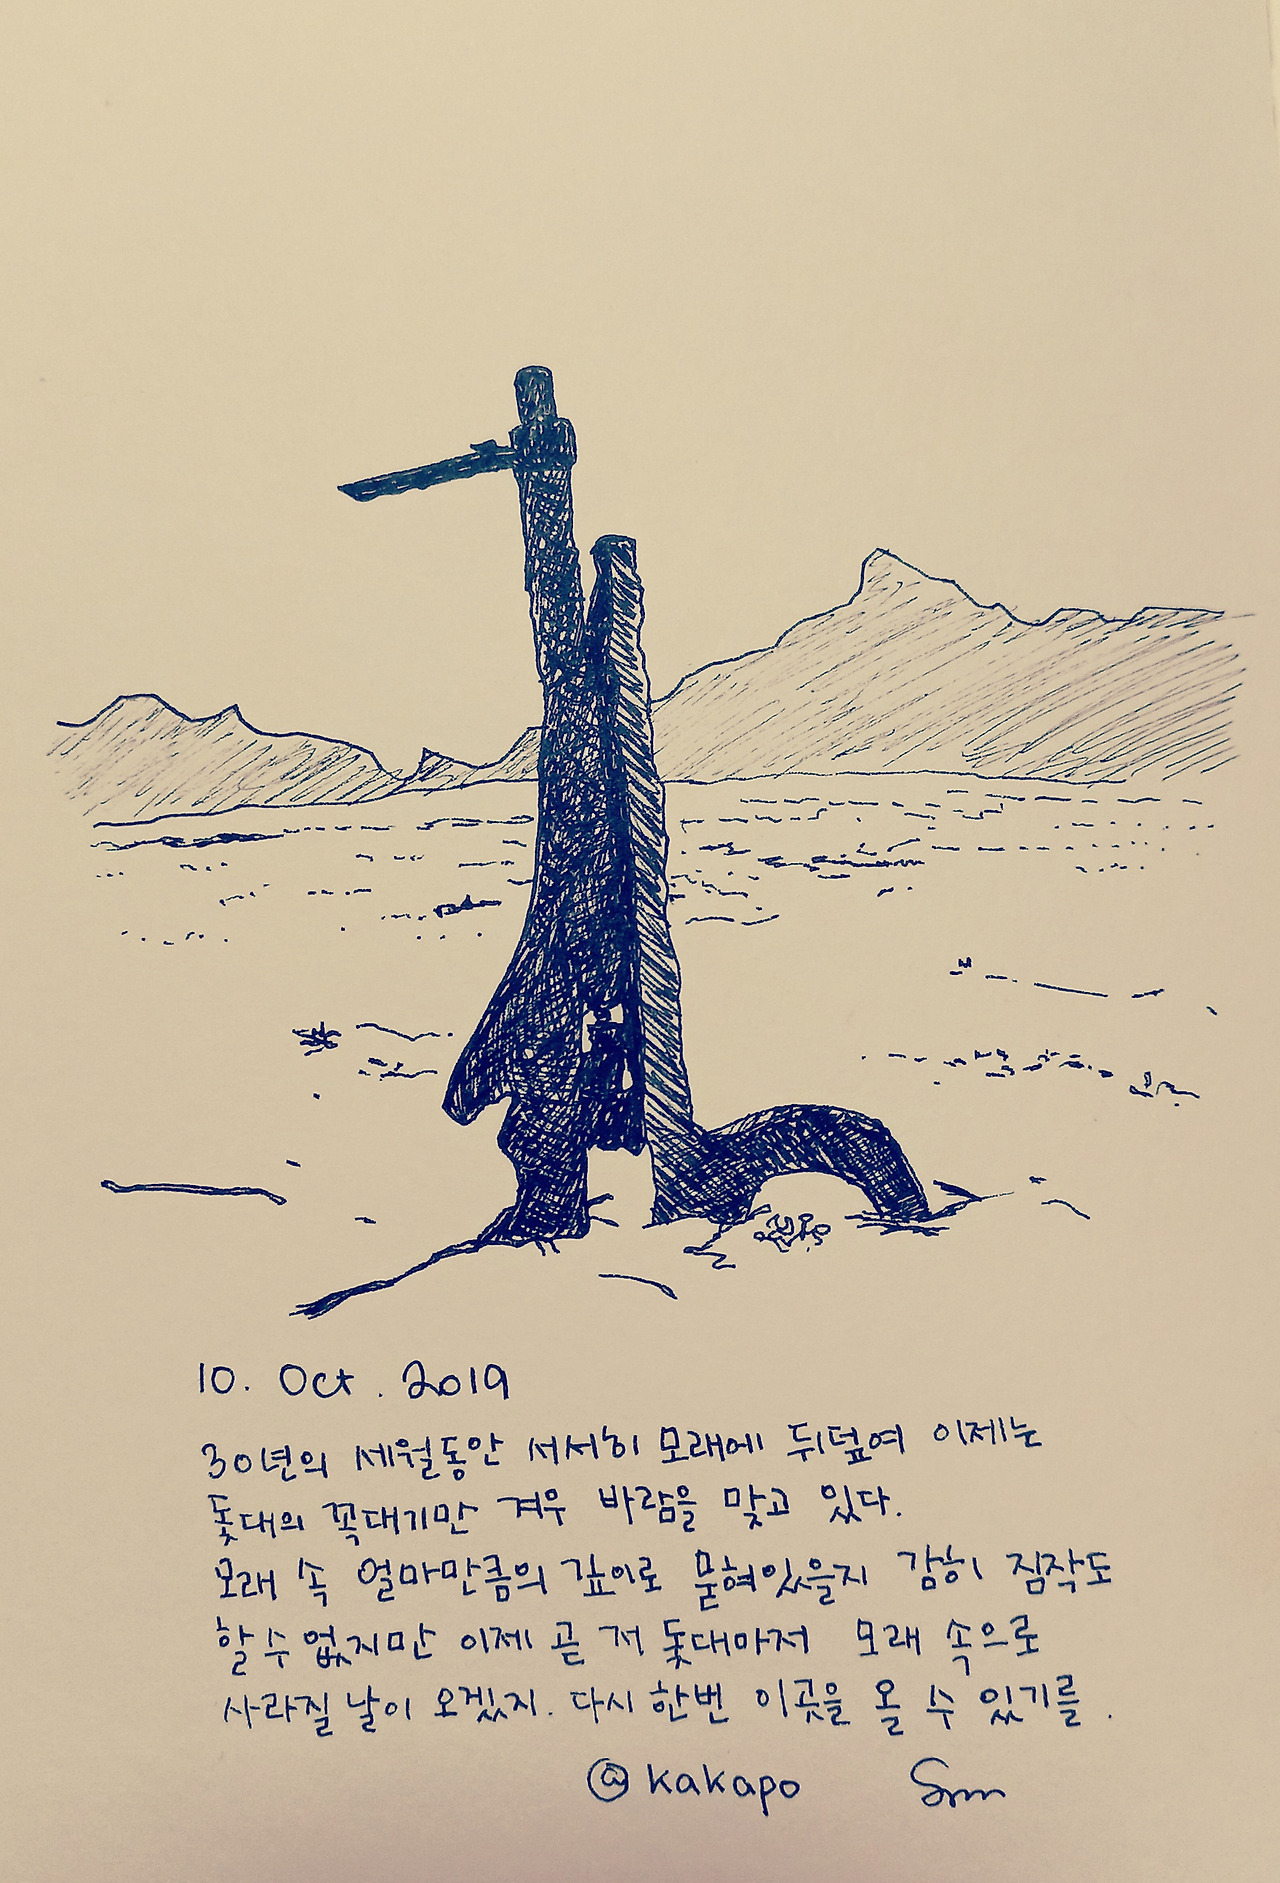 10. Oct. 2019
30년의 세월동안 서서히 모래에 뒤덮여 이제는
돛대의 꼭대기만 겨우 바람을 맞고 있다.
모래 속 얼마만큼의 깊이로 묻혀있을지 감히 짐작도
할수 없지만 이제 곧 저 돛대마저 모래 속으로
사라질 날이 오겠지. 다시 한번 이곳을 올 수 있기를.
@kakapo